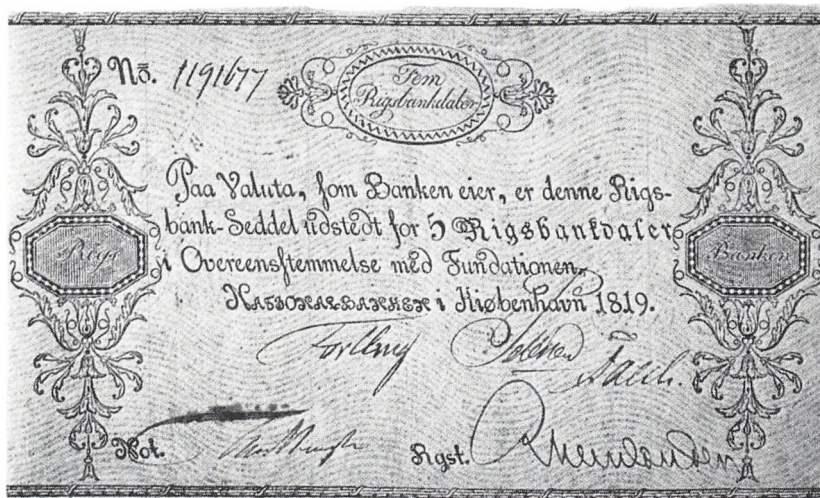 No. 1191677
Fem
Rigsbankdaler
Paa Valuta, som Banken eier, er denne Rigs-
bank-Seddel udstedt for 5 Rigsbankdaler
i Overeensstemmelse med Fundationen.
Rigs
Banken
NATIONALBANKEN i Kiøbenhavn 1819.
Not.
Rgst.